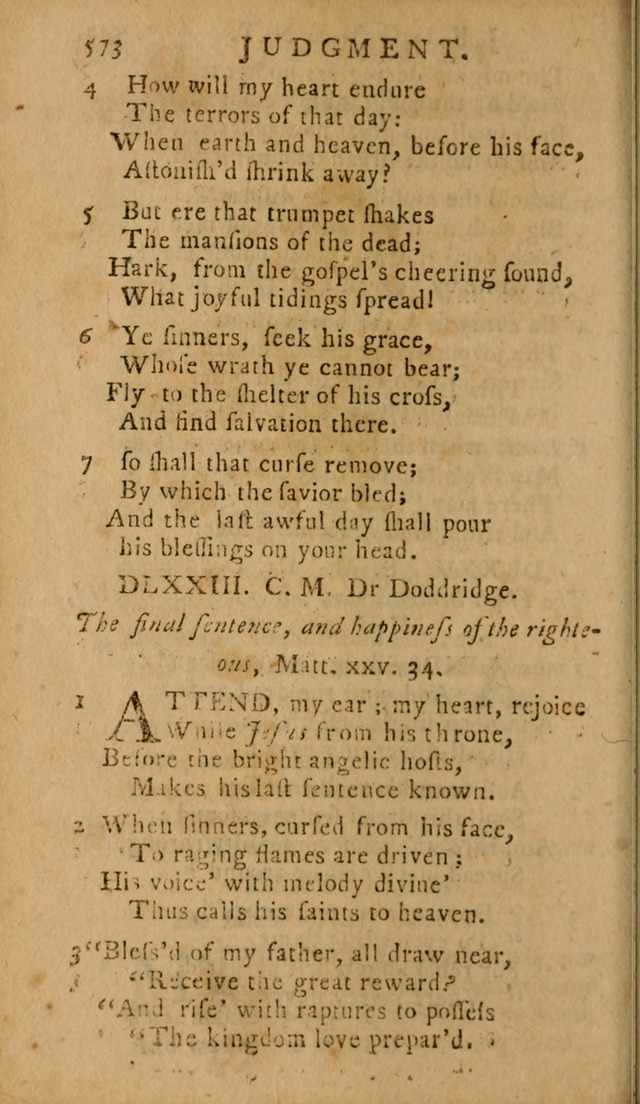 573 JUDGMENT.
4 How will my heart endure
The terrors of that day:
When earth and heaven, before his face,
Aſtoniſh'd ſhrink away?
5 But ere that trumpet ſhakes
The manſions of the dead;
Hark, from the goſpel's cheering ſound,
What joyful tidings ſpread!
6 Ye ſinners, ſeek his grace,
Whoſe wrath ye cannot bear;
Fly to the ſhelter of his croſs,
And find ſalvation there.
7 ſo ſhall that curſe remove;
By which the ſavior bled;
And the laſt awful day ſhall pour
his bleſſings on your head.
DLXXIII. C. M. Dr Doddridge.
The final ſentence, and happineſs of the righte-
ous, Matt. xxv. 34.
1 ATTEND, my ear; my heart, rejoice
While Jeſus from his throne,
Before the bright angelic hoſts,
Makes his laſt ſentence known.
2 When ſinners, curſed from his face,
To raging flames are driven;
His voice' with melody divine'
Thus calls his ſaints to heaven.
3 "Bleſs'd of my father, all draw near,
"Receive the great reward?
"And riſe' with raptures to poſſeſs
"The kingdom love prepar'd.